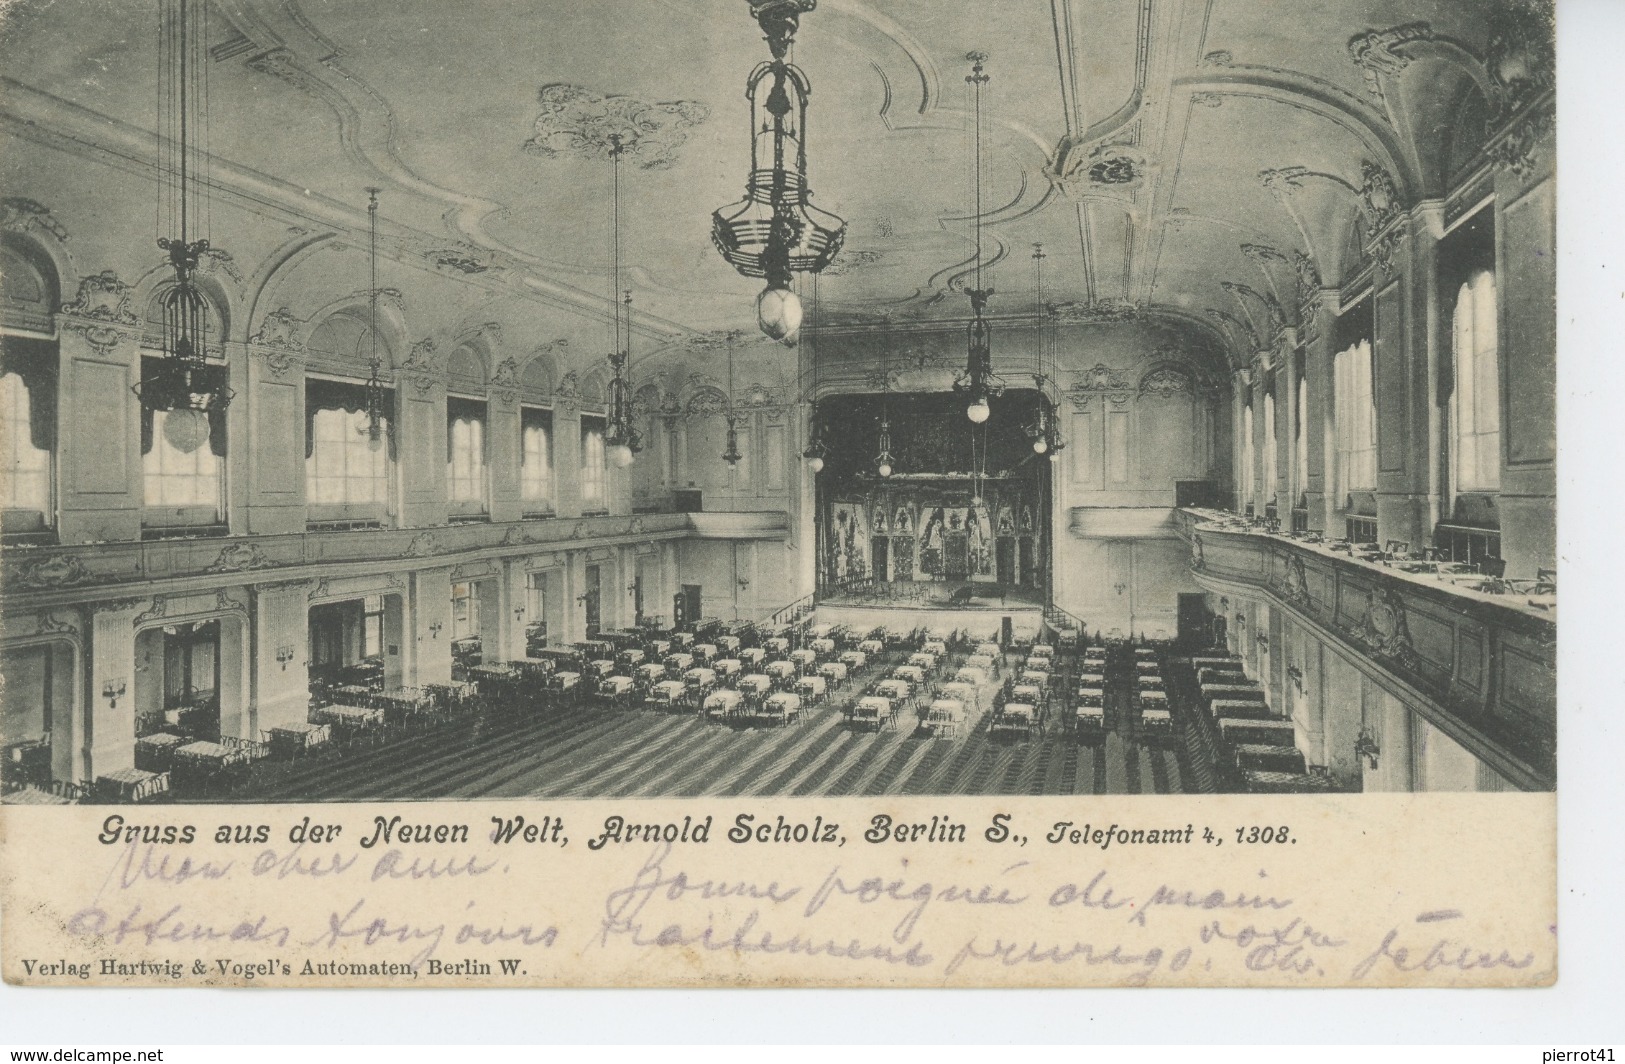 Gruss aus der Neuen Welt, Arnold Scholz, Berlin S., Telefonamt 4, 1308.
Mon cher ami. Bonne poignée de main
attends toujours traitement prurigo. votre
Verlag Hartwig & Vogel's Automaten, Berlin W.
www.delcampe.net
pierrot41